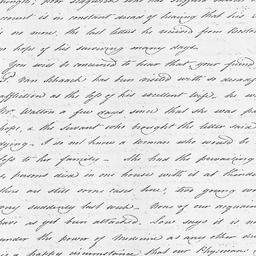 account is in constant dread of hearing that his
is no more, the last letters he received from Boston
no hopes of his surviving many days.
You will be concerned to hear that your friend
P. Van Schaack has been visited with so dreadful
affliction as the loss of his excellent wife, he
Mr. Walton a few days since that she was past
hope, & the Servant who brought the letter said
dying. I do not know a woman who would be
loss to her family — she had the prevailing
persons died in one house with it at
there are still some cases here, two young
very suddenly last week. None of our acquaintance
have as yet been attacked. Low says it is
under the power of Medicine as any other
is a happy circumstance that our Physicians